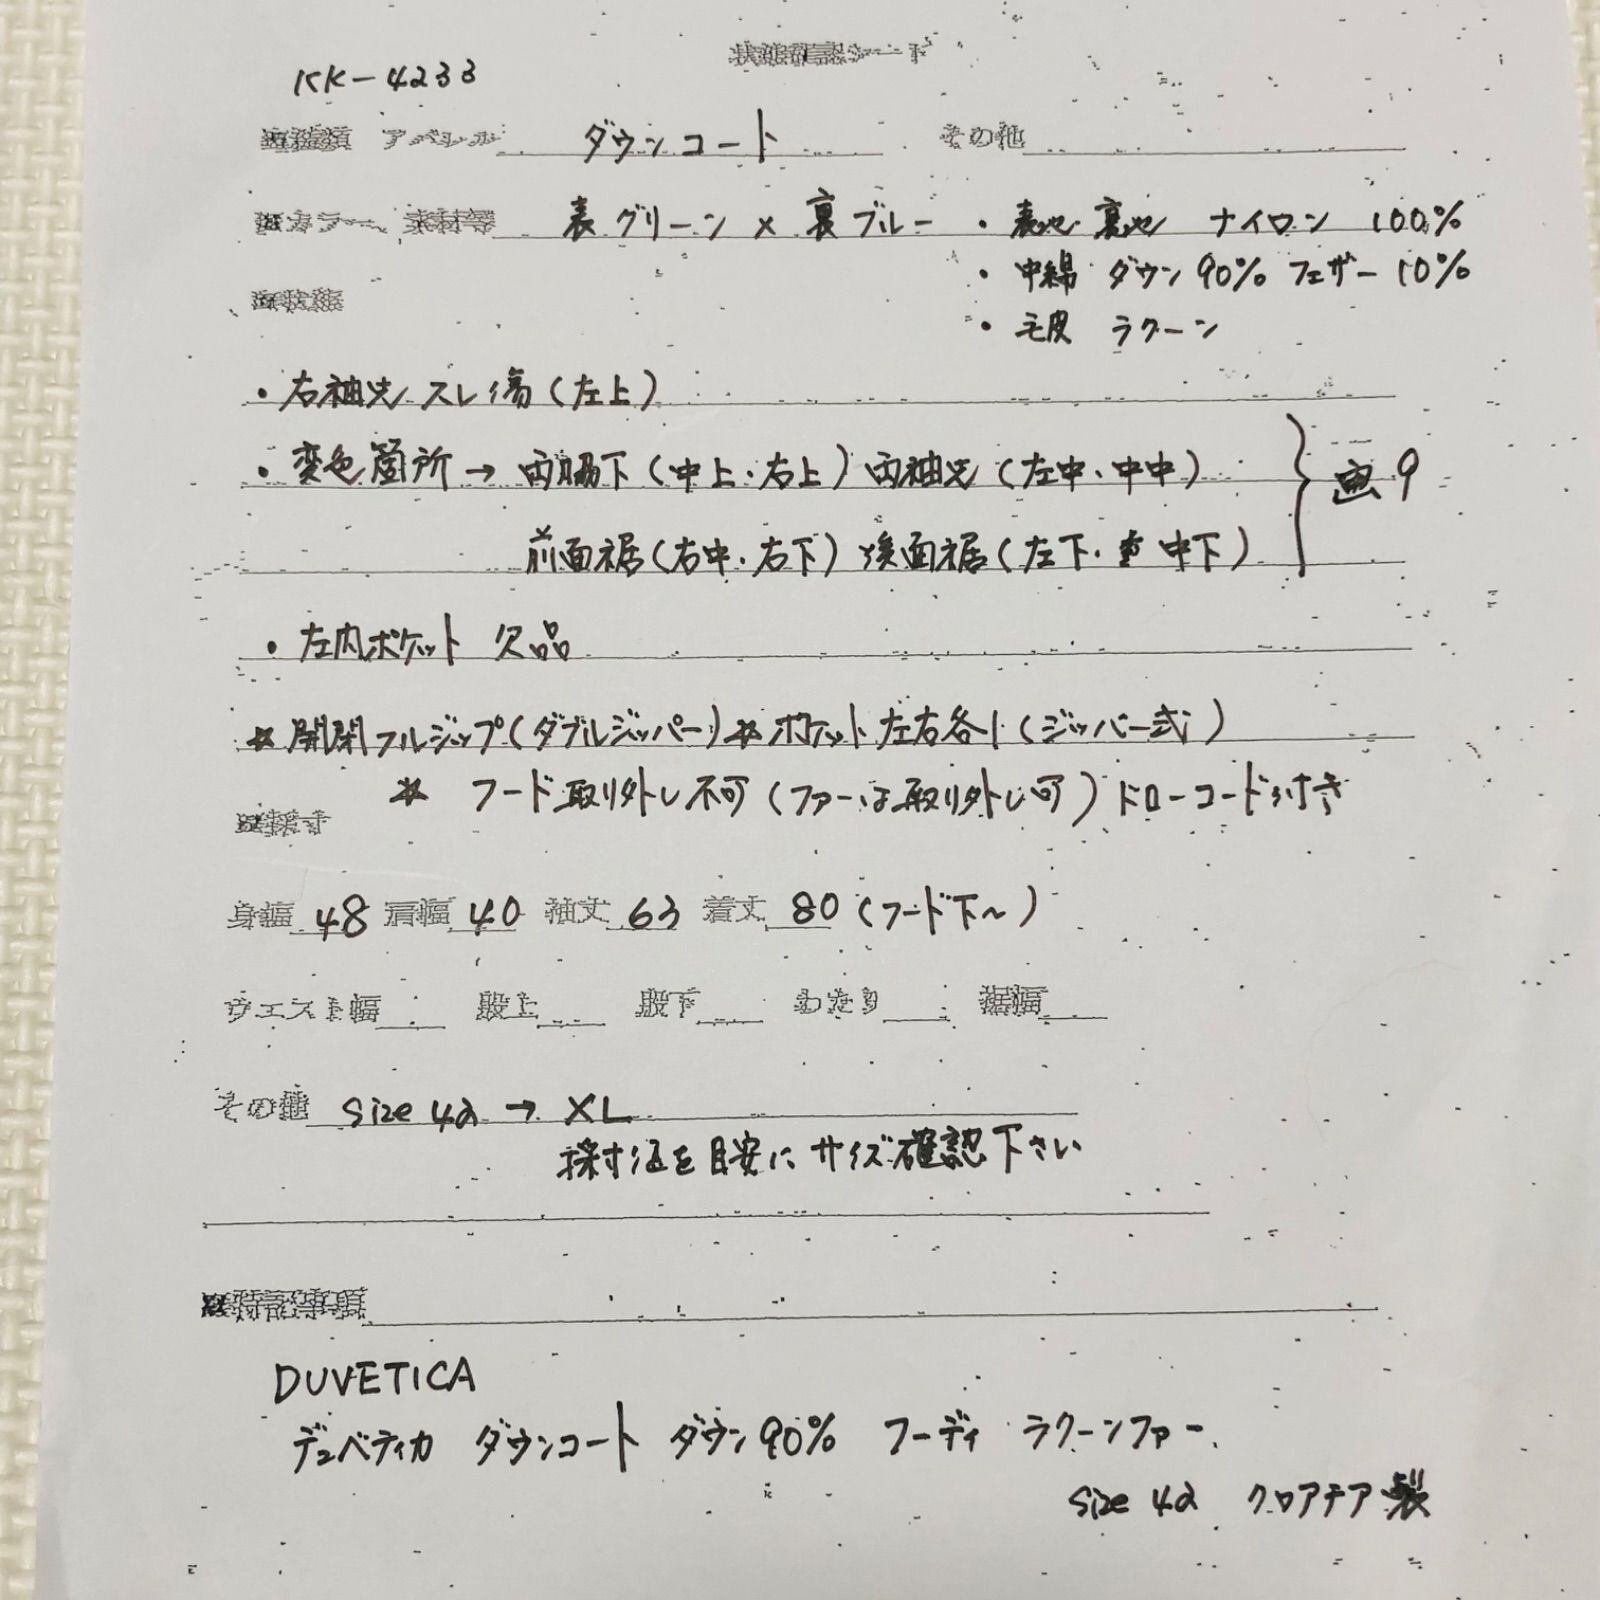 状態確認シート
KK-4233
アパレル ダウンコート その他
カラー、素材等 表グリーン×裏ブルー ・表地・裏地 ナイロン 100%
・中綿 ダウン90% フェザー10%
状態
・毛皮 ラクーン
・右袖先スレ傷(左上)
・変色箇所→両脇下(中上・右上)両袖先(左中・中中)
画9
前面裾(右中・右下)後面裾(左下・中下)
・左内ポケット 欠品
*開閉フルジップ(ダブルジッパー)*ポケット左右各1(ジッパー式)
* フード取り外し不可(ファーは取り外し可)ドローコード付き
採寸
身幅 48 肩幅 40 袖丈 63 着丈 80(フード下~)
ウエスト幅 股上 股下 わたり 裾幅
その他 size 42 → XL
採寸値を目安にサイズ確認下さい
特記事項
DUVETICA
デュベティカ ダウンコート ダウン90% フーディ ラクーンファー
size 42 クロアチア製